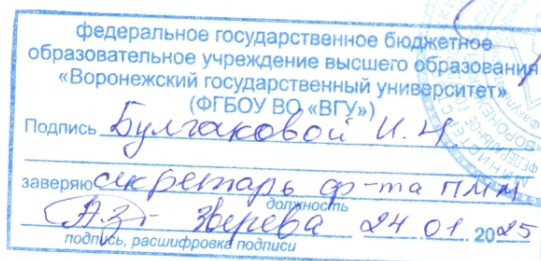 федеральное государственное бюджетное
образовательное учреждение высшего образования
«Воронежский государственный университет»
(ФГБОУ ВО «ВГУ»)
Подпись Булгаковой И.Н
заверяю секретарь ф-та ПММ
должность
Зверева 24 01 2025
подпись, расшифровка подписи